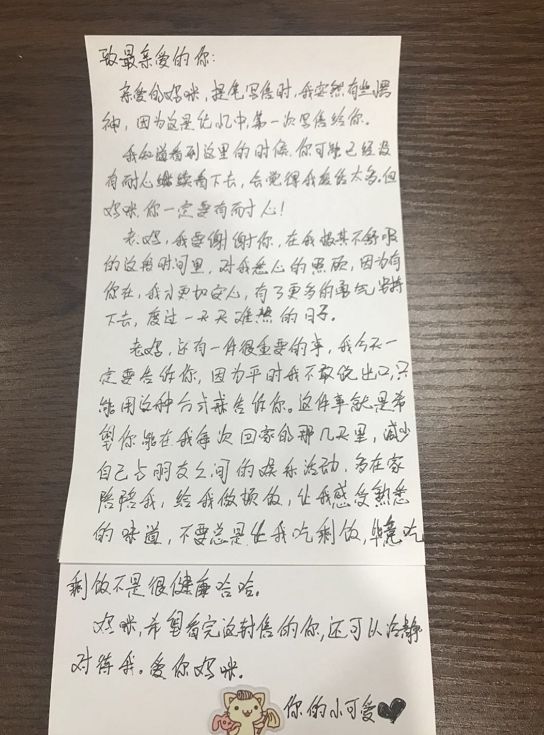 致最亲爱的你:
亲爱的妈咪,提笔写信时,我突然有些愣
神,因为这是记忆中,第一次写信给你。
我知道看到这里的时候,你可能已经没
有耐心继续看下去,会觉得我废话太多,但
妈咪,你一定要有耐心!
老妈,我要谢谢你,在我极其不舒服
的这段时间里,对我悉心的照顾,因为有
你在,我才更加安心,有了更多的勇气坚持
下去,度过一天天难熬的日子。
老妈,还有一件很重要的事,我今天一
定要告诉你,因为平时我不敢说出口,只
能用这种方式来告诉你。这件事就是希
望你能在我每次回家的那几天里,减少
自己与朋友之间的娱乐活动,多在家
陪陪我,给我做顿饭,让我感受熟悉
的味道,不要总是让我吃剩饭,毕竟吃
剩饭不是很健康哈哈。
妈咪,希望看完这封信的你,还可以冷静
对待我。爱你妈咪。
你的小可爱